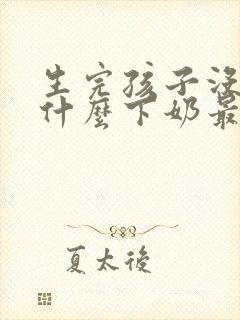 生完孩子沒
什麼下奶最
夏太後